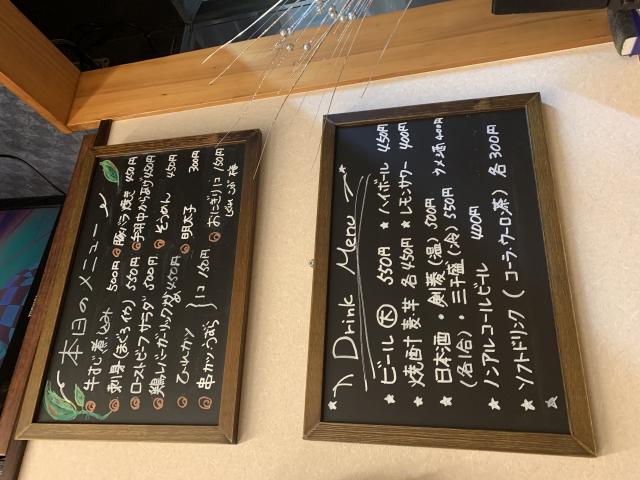 本日のメニュー
牛すじ煮込み 500円
刺身(まぐろ イカ) 550円
ローストビーフサラダ 500円
鶏レバーガーリック炒め 450円
ヒレカツ
串カツ・うずら } 1コ 150円
豚バラ焼き 450円
手羽中からあげ 450円
そうめん 450円
明太子 300円
おにぎり 1コ 150円
Drink Menu
ビール 大 550円 ★ ハイボール 450円
焼酎 麦・芋 各450円 ★ レモンサワー 400円
日本酒・剣菱(温) 500円 ウメ酒 400円
(各1合)・三千盛(冷) 550円
ノンアルコールビール 400円
ソフトドリンク (コーラ・ウーロン茶) 各300円